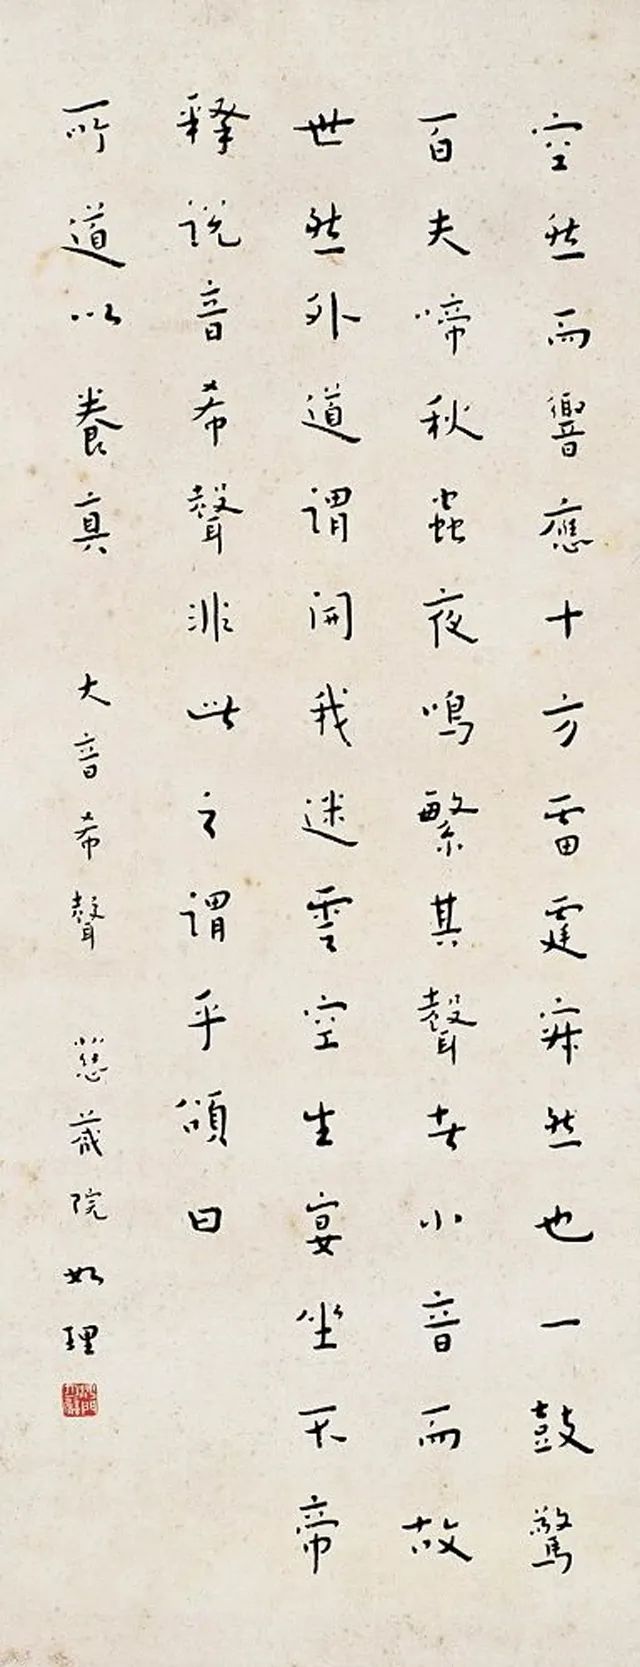 空然而響應十方雷霆寂然也一鼓驚
百夫啼秋蟲夜鳴繁其聲者小音而故
世然外道謂開我迷雲空生宴坐天帝
釋說音希聲非此之謂乎頌曰
所道以養真 大音希聲 慈藏院如理